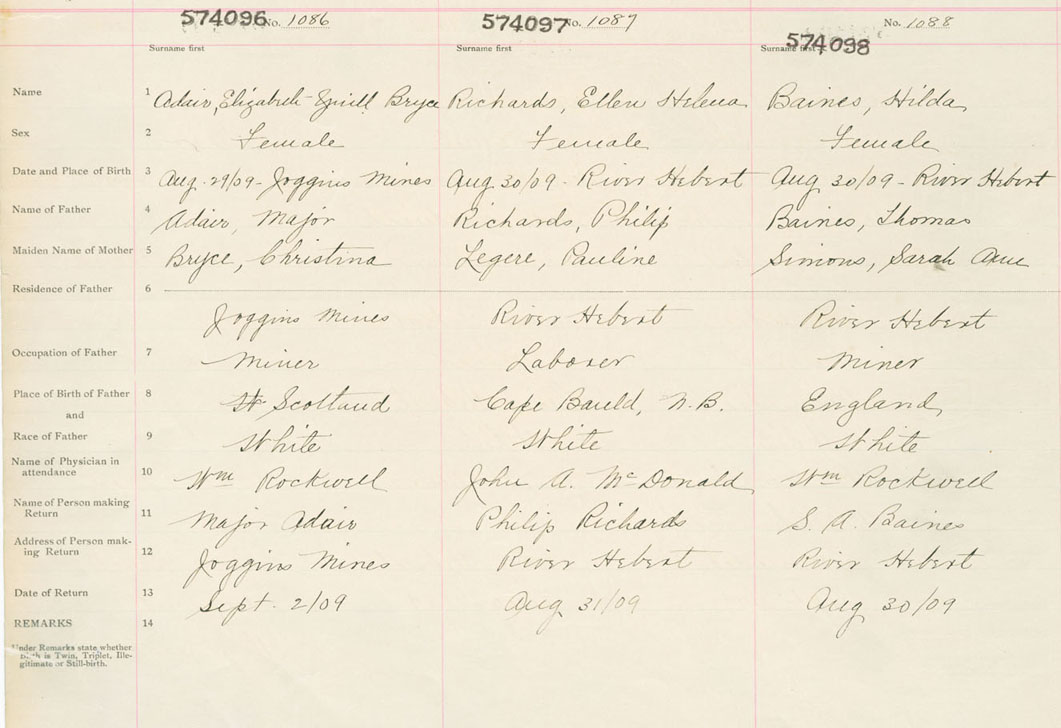 574096 No. 1086 574097 No. 1087 No. 1088
Surname first Surname first Surname first 574098
Name 1 Adair, Elizabeth Bryce Richards, Ellen Helena Baines, Hilda
Sex 2 Female Female Female
Date and Place of Birth 3 Aug. 29/09 - Joggins Mines Aug 30/09 - River Hebert Aug 30/09 - River Hebert
Name of Father 4 Adair, Major Richards, Philip Baines, Thomas
Maiden Name of Mother 5 Bryce, Christina Legere, Pauline Simons, Sarah Ann
Residence of Father 6
Joggins Mines River Hebert River Hebert
Occupation of Father 7 Miner Laborer Miner
Place of Birth of Father 8 Scotland Cape Bauld, N.B. England
and
Race of Father 9 White White White
Name of Physician in
attendance 10 Wm Rockwell John A. McDonald Wm Rockwell
Name of Person making
Return 11 Major Adair Philip Richards S. A. Baines
Address of Person mak-
ing Return 12 Joggins Mines River Hebert River Hebert
Date of Return 13 Sept. 2/09 Aug 31/09 Aug 30/09
REMARKS 14
Under Remarks state whether
birth is Twin, Triplet, Ille-
gitimate or Still-birth.